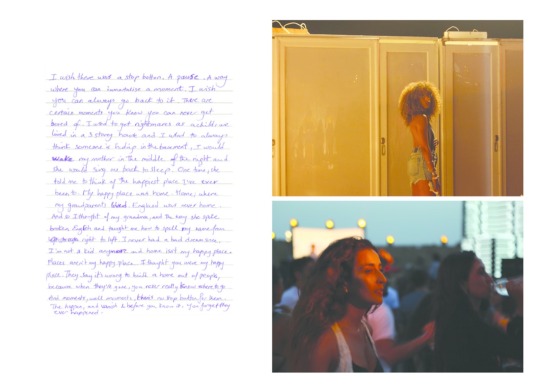 I wish there was a stop button. A pause. A way
where you can immortalise a moment. I wish
you can always go back to it. There are
certain moments you know you can never get
bored of. I used to get nightmares as a child; we
lived in a 3 storey house and I used to always
think someone is hiding in the basement, I would
wake my mother in the middle of the night and
she would sing me back to sleep. One time, she
told me to think of the happiest place I've ever
been to. My happy place was home. Home, where
my grandparents lived. England was never home.
And so I thought of my grandma, and the way she spoke
broken English and taught me how to spell my name from
right to left. I never had a bad dream since.
I'm not a kid anymore and home isn't my happy place.
Places aren't my happy place. I thought you were my happy
place. They say it's wrong to build a home out of people,
because when they're gone, you never really know where to go.
And moments, well moments, there's no stop button for them.
They happen, and before you know it, you forget they
ever happened.